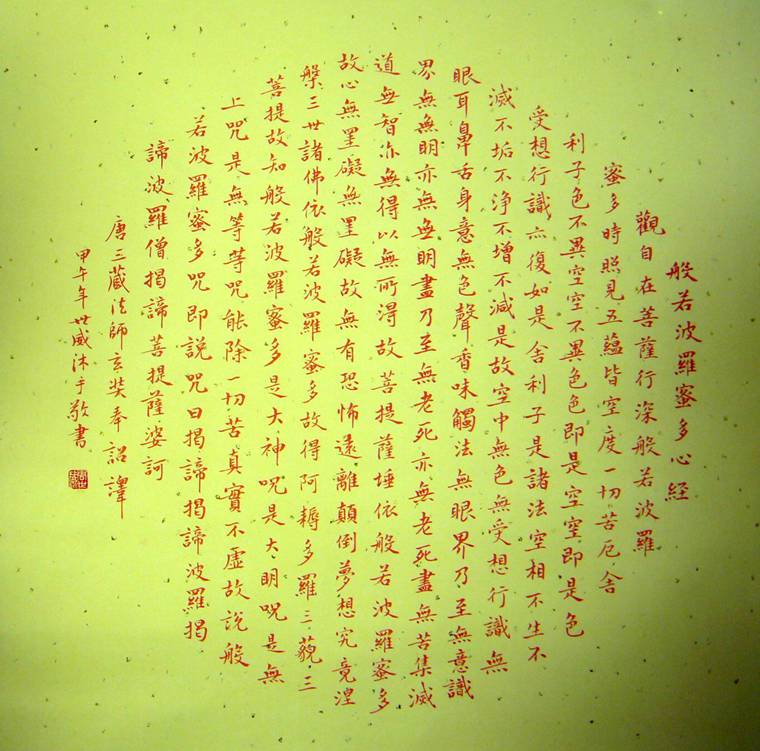 般若波羅蜜多心経
觀自在菩薩行深般若波羅
蜜多時照見五蘊皆空度一切苦厄舍
利子色不異空空不異色色即是空空即是色
受想行識亦復如是舍利子是諸法空相不生不
滅不垢不淨不增不減是故空中無色無受想行識無
眼耳鼻舌身意無色聲香味觸法無眼界乃至無意識
界無無明亦無無明盡乃至無老死亦無老死盡無苦集滅
道無智亦無得以無所得故菩提薩埵依般若波羅蜜多
故心無罣礙無罣礙故無有恐怖遠離顛倒夢想究竟涅
槃三世諸佛依般若波羅蜜多故得阿耨多羅三藐三
菩提故知般若波羅蜜多是大神呪是大明呪是無
上咒是無等等咒能除一切苦真實不虛故說般
若波羅蜜多咒即說咒曰揭諦揭諦波羅揭
諦波羅僧揭諦菩提薩婆訶
唐三藏法師玄奘奉詔譯
甲午年世威沐手敬書